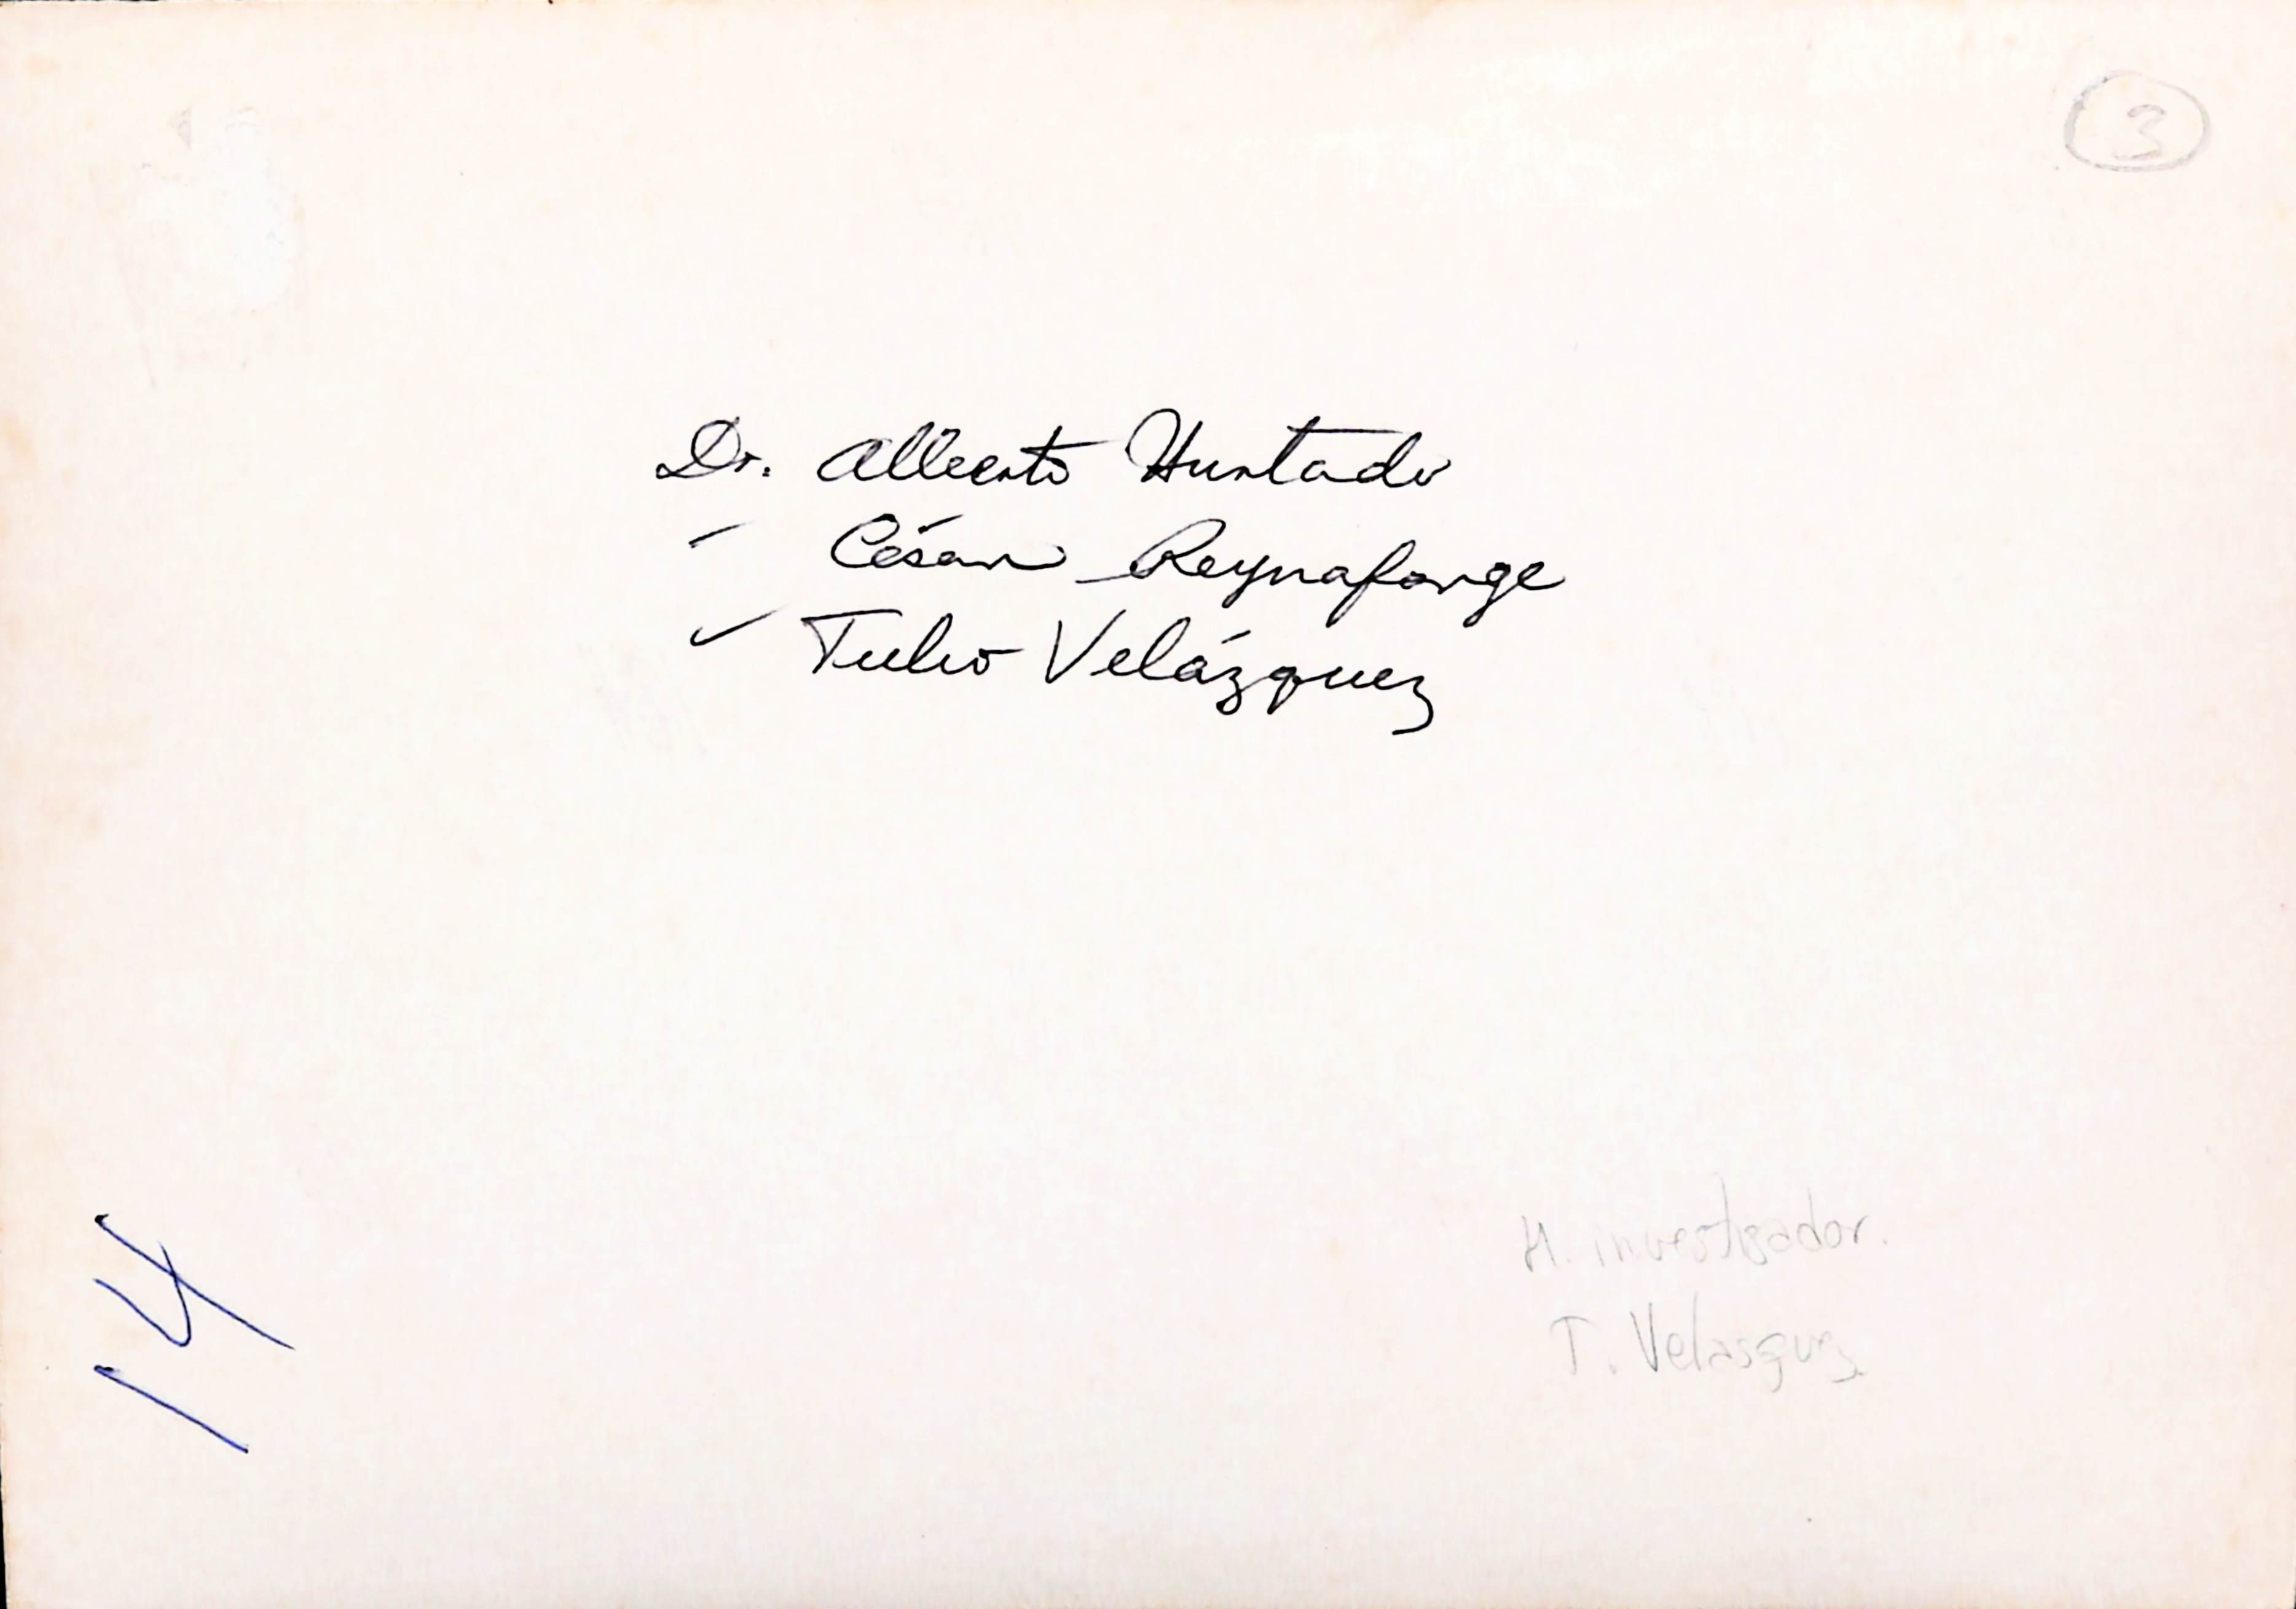 3
Dr. Alberto Hurtado
- César Reynafarge
- Tulio Velázquez
H. investigador.
T. Velasquez
14